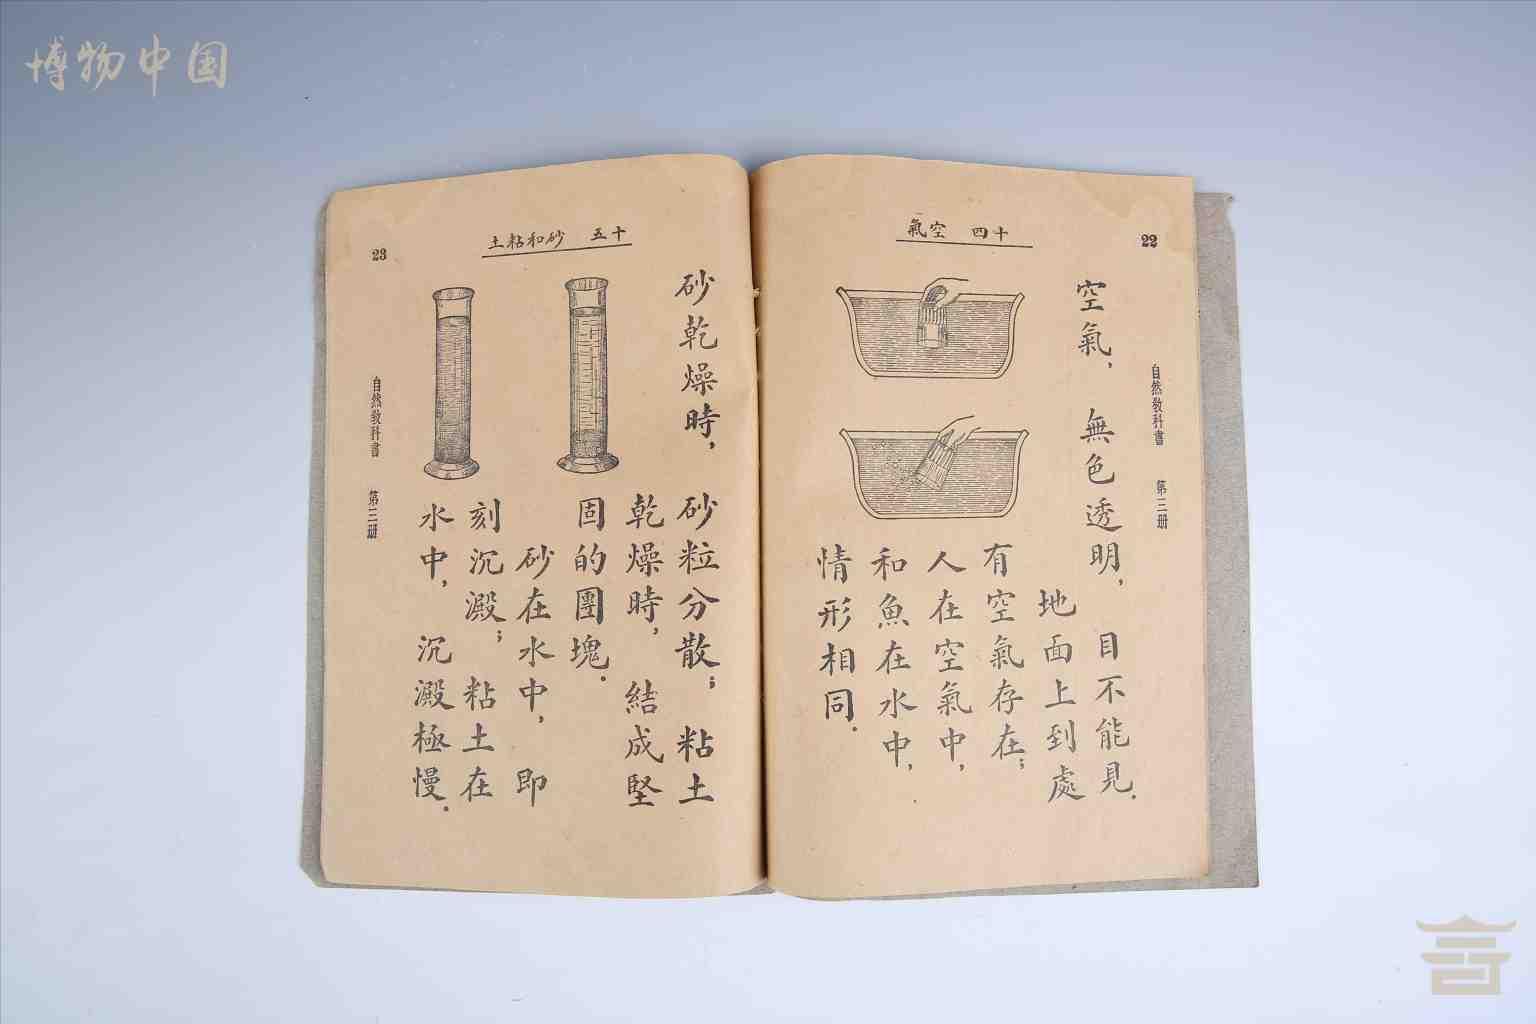 博物中国
22
十四 空氣
自然教科書 第三册
空氣，無色透明，目不能見．
地面上到處
有空氣存在；
人在空氣中，
和魚在水中，
情形相同．
十五 砂和粘土
23
砂乾燥時，砂粒分散；粘土
乾燥時，結成堅
固的團塊．
砂在水中，即
刻沉澱；粘土在
水中，沉澱極慢．
自然教科書 第三册